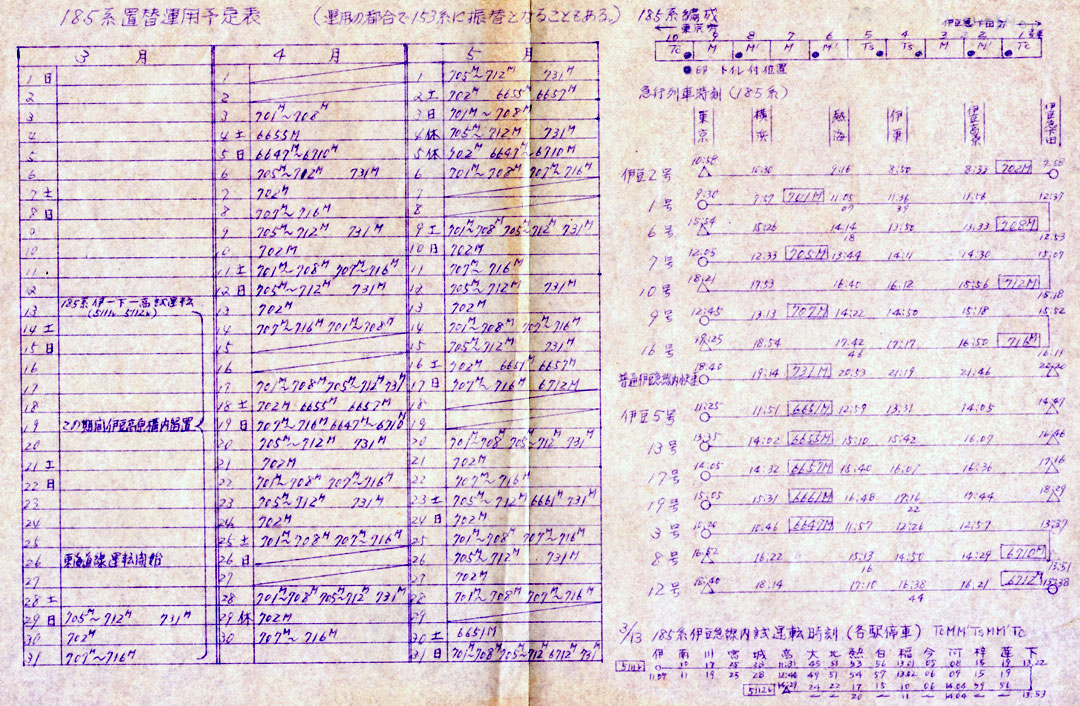 185系置替運用予定表 (運用の都合で153系に振替となることもある。)
3 月 4 月 5 月
1 日 1 1 705M〜712M 731M
2 2 2 土 702M 6655M 6657M
3 3 701M〜708M 3 日 701M〜708M
4 4 土 6655M 4 休 705M〜712M 731M
5 5 日 6647M〜6710M 5 休 6647M〜6710M
6 6 731M 6 701M〜708M 707M〜716M
7 土 7 702M 7
8 日 8 707M〜716M 8
9 9 705M〜712M 731M 9 土 701M〜708M 705M〜712M 731M
10 10 702M 10 日 702M
11 11 土 701M〜708M 707M〜716M 11 707M〜716M
12 日 705M〜712M 731M 12 705M〜712M 731M
185系伊一下一高試運転
13 13 702M 13 702M
14 土 14 707M〜716M 701M〜708M 14 701M〜708M 707M〜716M
15 日 15 15 705M〜712M 731M
16 16 16 土 702M 6651M 6657M
17 17 701M〜708M 705M〜712M 731M 17 日 707M〜716M 6712M
18 18 土 702M 6655M 6657M 18
19 この期間伊豆高原構内留置 19 日 707M〜716M 6647M〜6710M 19
20 20 705M〜712M 731M 20 701M〜708M 705M〜712M 731M
21 土 21 702M 21 702M
22 日 22 701M〜708M 707M〜716M 22 707M〜716M
23 23 705M〜712M 731M 23 土 705M〜712M 6661M 731M
24 24 702M 24 日 702M
25 25 土 701M〜708M 707M〜716M 25 701M〜708M 707M〜716M
26 東海道線運転開始 26 日 26 705M〜712M 731M
27 27 27 702M
28 土 28 701M〜708M 705M〜712M 731M 28 701M〜708M 707M〜716M
29 日 705M〜712M 731M 29 休 702M 29
30 702M 30 707M〜716M 30 土 6651M
31 707M〜716M 31 日 701M〜708M 705M〜712M 6712M 731M
185系編成
←東京方 伊豆急下田方→
10 9 8 7 6 5 4 3 2 1号車
Tc M M' M M' Ts Ts M M' Tc
●印・トイレ付位置
急行列車時刻(185系)
東京 横浜 熱海 伊東 伊豆高原 伊豆急下田
伊豆2号 10:58 10:30 9:16 8:50 8:33 702M 7:58
1号 9:30 9:57 701M 11:05 07 11:36 39 11:56 12:37
6号 15:54 15:26 14:14 18 13:50 13:33 708M 12:53
7号 12:05 12:33 705M 13:44 14:11 14:30 15:07
10号 18:21 17:53 16:40 16:12 15:56 712M 15:18
9号 12:45 13:13 707M 14:22 14:50 15:18 15:52
16号 19:25 18:54 17:42 46 17:17 16:50 716M 16:11
18:40 19:14 731M 20:53 21:19 21:46 22:20
伊豆5号 11:25 11:51 6651M 12:59 13:31 14:05 14:47
13号 13:35 14:02 6655M 15:10 15:42 16:07 16:46
17号 14:05 14:32 6657M 15:40 16:07 16:36 17:16
19号 15:05 15:31 6661M 16:48 17:16 22 17:44 18:29
3号 10:46 6647M 11:57 12:26 12:57 13:37
8号 16:52 16:22 15:13 16 14:50 14:29 6710M 13:51
12号 18:40 18:14 17:10 16:38 44 16:21 6712M 15:38
3/13 185系伊豆急線内試運転時刻(各駅停車) TcMM'TsMM'Tc
伊 南 川 富 城 高 大 北 熱 白 稲 今 河 梓 蓮 下
5111b 11:07 13:22
5112b 13:53